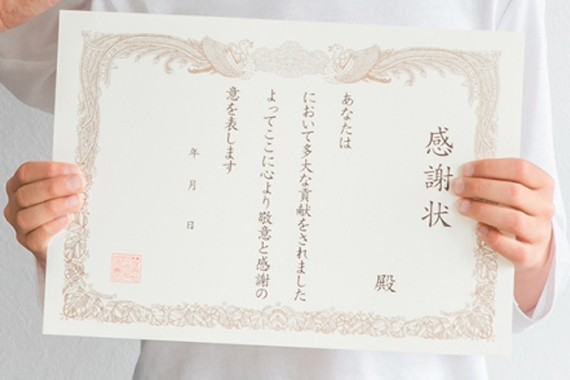 感謝状
殿
あなたは
において多大な貢献をされました
よってここに心より敬意と感謝の
意を表します
年 月 日